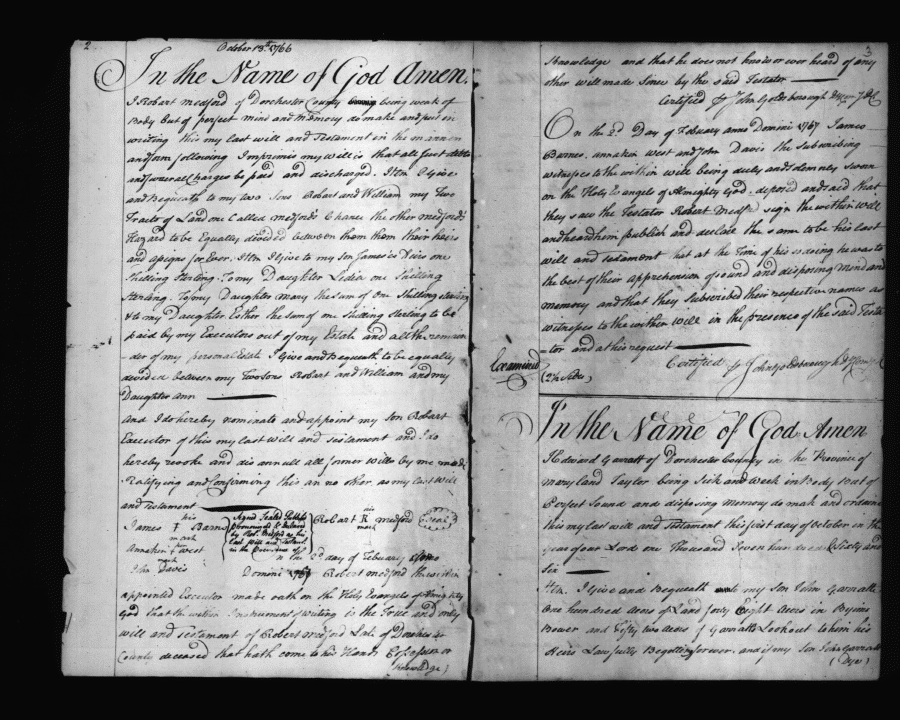 2
October 13th 1766
In the Name of God Amen.
I Robart medford of Dorchester County being weak of
Body but of perfect mind and Memory do make and put in
writing this my last will and Testament in the manner
and form following Imprimis my will is that all Just debts
and funerall Charges be paid and discharged. Item I give
and Bequeath to my two Sons Robart and William my Two
Tracts of Land one Called medford's Chance the other medford's
Hazard to be Equally divided between them them their heirs
and assigns for Ever. Item I Give to my Son James's Heirs one
Shilling Sterling. To my Daughter Lidia one Shilling
Sterling. To my Daughter mary the sum of One Shilling sterling
& to my Daughter Esther the sum of one Shilling Sterling to be
paid by my Executors out of my Estate and all the remain
-der of my personal Estate I Give and Bequeath to be equally
devided between my Two Sons Robart and William and my
Daughter Ann
and I do hereby nominate and appoint my son Robart
Executor of this my last will and testament and I do
hereby revoke and disannull all former wills by me made
Ratifying and Confirming this an no other, as my Last Will
and Testament
his
James I Barns
mark
his
Annakin West
mark
John Davis
Signed Sealed Publish'd
pronounced & declared
by Robt Medford as his
last will and Testament
in the presence of
his
Robart R medford (Seal)
mark
On the 2d day of February anno
Domini 1767 Robart medford the within
appointed Executor made oath on the Holy Evangels of Almighty
God that the within Instrument of writing is the True and only
will and Testament of Robert Medford Late of Dorchester
County deceased that hath come to his Hands Possession or
Knowledge)
3
Knowledge and that he does not know or ever heard of any
other will made Since by the said Testator
Certified p John Goldsborough
On the 2d Day of February anno Domini 1767 James
Barnes. annakin West and John Davis the subscribing
witnesses to the within will being duly and solemnly sworn
on the Holy Evangels of Almighty God. deposed and said that
they saw the Testator Robert Medford sign the within will
and heard him publish and declare the same to be his last
will and testament that at the Time of his so doing he was to
the best of their apprehension of sound and disposing mind and
memory and that they subscribed their respective names as
witnesses to the within Will in the presence of the said Testa
-tor and at his request
Certified p John Goldsborough
Examined
(2½ Sides)
In the Name of God Amen
I Edward Garratt of Dorchester County in the Province of
mary land Taylor being Sick and Week in Body But of
Perfect Sound and disposing Memory do mak and ordaine
this my last will and Testament this first day of October in the
year of our Lord one Thousand Seven hundred & Sixty and
Six
Item. I Give and Bequeath unto my Son John Garratt
One hundred Acres of Land forty Eight Acres in
Bower and Fifty two Acres of Garratts Lookout to him his
Heirs Lawfully Begotten forever. and if my Son John Garratt
(Dye)